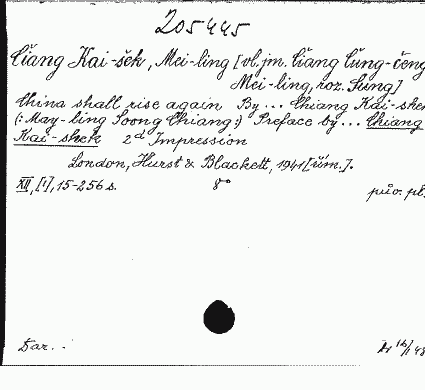 205445
Čiang Kai-šek, Mei-ling [vl. jm. Čiang Čung-čeng
Mei-ling, roz. Sung]
China shall rise again By... Chiang Kai-shek
(:May-ling Soong Chiang:) Preface by... Chiang
Kai-shek 2d Impression
London, Hurst & Blackett, 1941 [úm.].
XII, [1], 15-256 s. 8°
pův. pl.
Dar. -